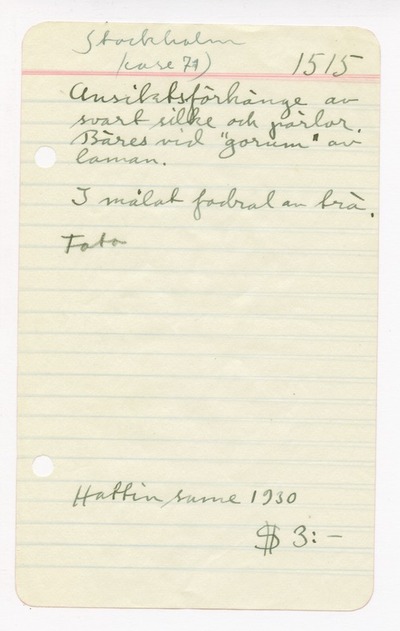 Stockholm
(case 71)
1515
Ansiktsförhänge av
svart silke och pärlor.
Bäres vid "gorum" av
laman.
I målat fodral av trä.
Foto
Hattin sume 1930
$ 3:-